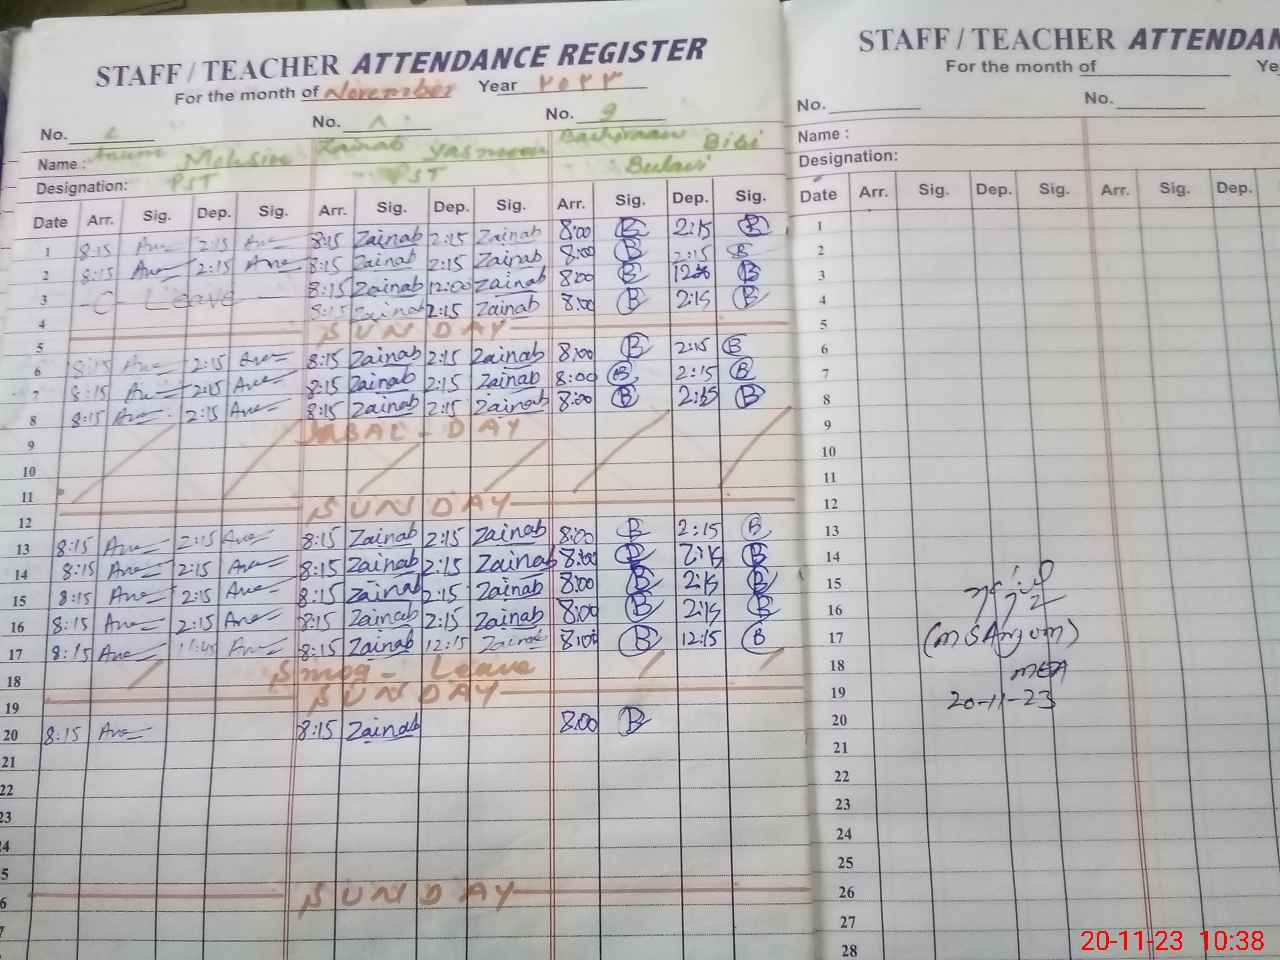 STAFF / TEACHER ATTENDANCE REGISTER
For the month of November Year ٢٠٢٣
No. No. ٨ No. 9
Name : Anum Mohsin Zainab Yasmeen Bashiraan Bibi
Designation: PST PST Bulavi
Date Arr. Sig. Dep. Sig. Arr. Sig. Dep. Sig. Arr. Sig. Dep. Sig.
1 8:15 2:15 8:15 Zainab 2:15 Zainab 8:00 B 2:15 B
2 8:15 2:15 8:15 Zainab 2:15 Zainab 8:00 B 2:15 B
3 -C- Leave 8:15 Zainab 12:00 Zainab 8:00 B B
4 8:15 Zainab 2:15 Zainab 8:00 B 2:15 B
5 SUNDAY
6 8:15 2:15 8:15 Zainab 2:15 Zainab 8:00 B 2:15 B
7 8:15 2:15 8:15 Zainab 2:15 Zainab 8:00 B 2:15 B
8 8:15 2:15 8:15 Zainab 2:15 Zainab 8:00 B 2:15 B
9 IQBAL - DAY
10
11
12 SUNDAY
13 8:15 2:15 8:15 Zainab 2:15 Zainab 8:00 B 2:15 B
14 8:15 2:15 8:15 Zainab 2:15 Zainab 8:00 B 2:15 B
15 8:15 2:15 8:15 Zainab 2:15 Zainab 8:00 B 2:15 B
16 8:15 2:15 8:15 Zainab 2:15 Zainab 8:00 B 2:15 B
17 8:15 8:15 Zainab 12:15 Zainab 8:00 B 12:15 B
18 Smog - Leave
19 SUNDAY
20 8:15 8:15 Zainab 8:00 B
21
22
23
24
25
26 SUNDAY
STAFF / TEACHER ATTENDAN
For the month of Ye
No. No.
Name :
Designation:
Date Arr. Sig. Dep. Sig. Arr. Sig. Dep.
1
2
3
4
5
6
7
8
9
10
11
12
13
14
15
16
17 (MS Anjum)
18 MEA
19 20-11-23
20
21
22
23
24
25
26
27
28
20-11-23 10:38